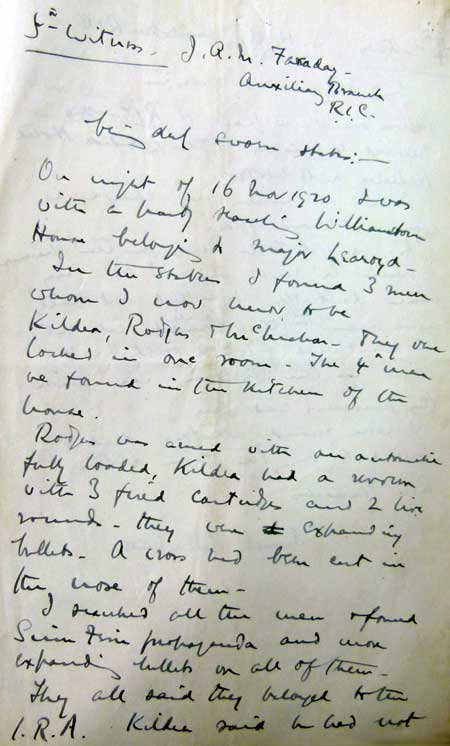 5th Witness. J. A. M. Faraday -
Auxiliary Branch
R.I.C.
being duly sworn states:-
On night of 16 Nov 1920 I was
with a party searching Williamstown
House belonging to Major
In the stables I found 3 men
whom I now know to be
Kildea, Rodgers & They were
locked in one room - The 4th man
we found in the kitchen of the
house.
Rodgers was armed with an automatic
fully loaded, Kildea had a revolver
with 3 fired cartridges and 2 live
rounds - they were expanding
bullets - A cross had been cut in
the nose of them -
I searched all the men & found
Sinn Fein propaganda and more
expanding bullets on all of them -
They all said they belonged to the
I.R.A. Kildea said he had not